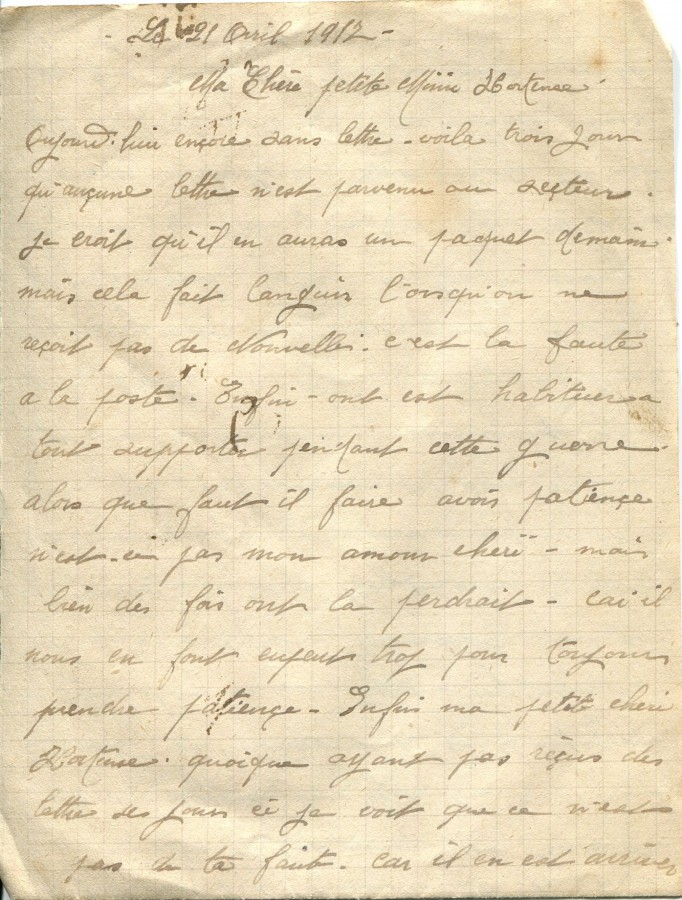 - Le 21 Avril 1917 -
Ma Chère petite Mimi Hortense.
Aujourd'hui encore sans lettre - voila trois jour
qu'auçune lettre n'est parvenu au secteur.
je croit qu'il en auras un paquet demain.
mais cela fait languir l'orsqu'on ne
reçoit pas de Nouvelle. c'est la faute
a la poste. Enfin - ont est habituer a
tout supporter pendant cette guerre.
alors que faut il faire avoir patiençe
n'est-ce pas mon amour cheri - mais
bien des fois ont la perdrait - car il
nous en font trop pour toujours
prendre patiençe - Enfin ma petite cheri
Hortense. quoique ayant pas reçus des
lettre ses jours ci je voit que ce n'est
pas de ta faute. car il en est arriver